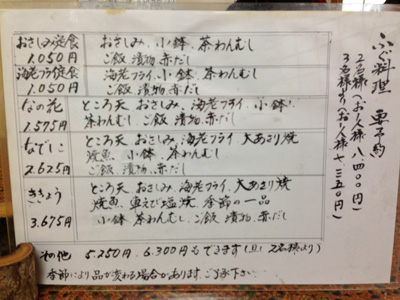 おさしみ定食 おさしみ、小鉢、茶わんむし
1.050円 ご飯 漬物 赤だし
海老フライ定食 海老フライ、小鉢、茶わんむし
1.050円 ご飯 漬物 赤だし
なの花 ところ天 おさしみ、海老フライ、小鉢
1.575円 茶わんむし、ご飯 漬物 赤だし
なでしこ ところ天 おさしみ 海老フライ 大あさり焼
焼魚 小鉢、茶わんむし
2.625円 ご飯 漬物 赤だし
ききょう ところ天 おさしみ 海老フライ、大あさり焼
焼魚、車えび塩焼 季節の一品
3.675円 小鉢 茶わんむし、ご飯 漬物 赤だし
その他 5.250円 6.300円もできます(但し 2名様より)
季節により品が変わる場合があります ご了承下さい
ふぐ料理 要予約
2名様 (お一人様 八四〇〇円)
3名様より (お一人様 七三五〇円)